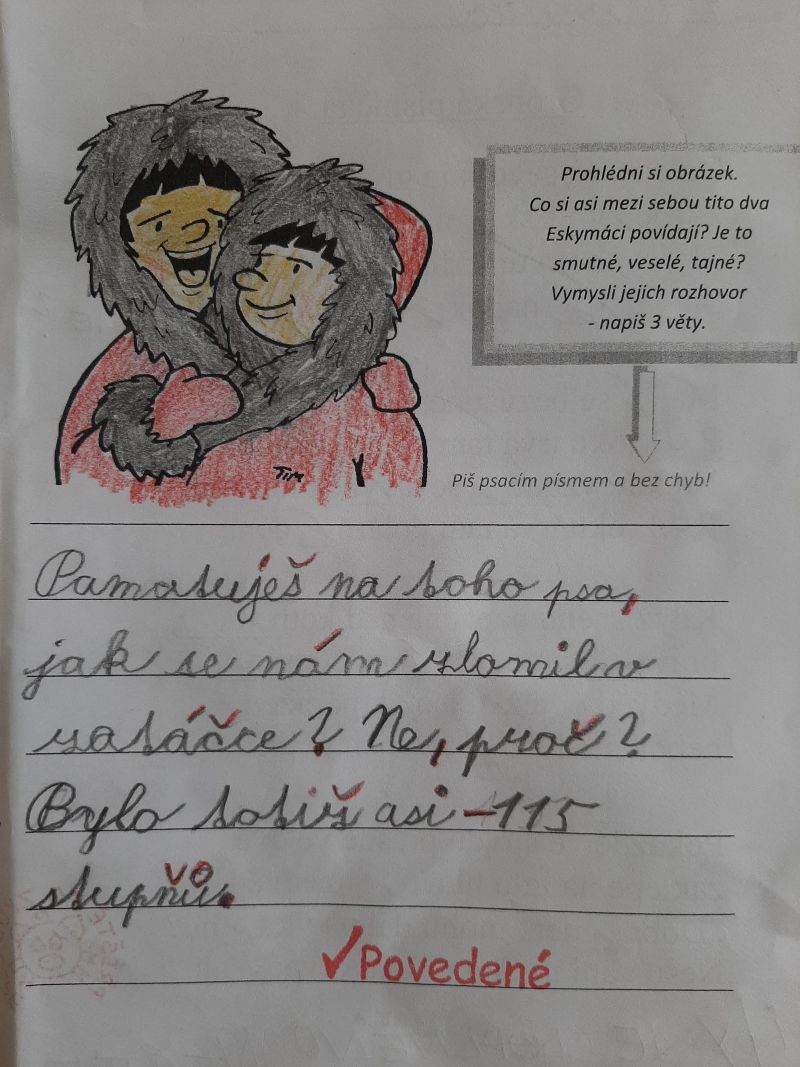 Prohlédni si obrázek.
Co si asi mezi sebou tito dva
Eskymáci povídají? Je to
smutné, veselé, tajné?
Vymysli jejich rozhovor
- napiš 3 věty.
TIM
Piš psacím písmem a bez chyb!
Pamatuješ na toho psa,
jak se nám zlomil v
zatáčce? Ne, proč?
Bylo totiž asi -115
stupňů.
✓Povedené